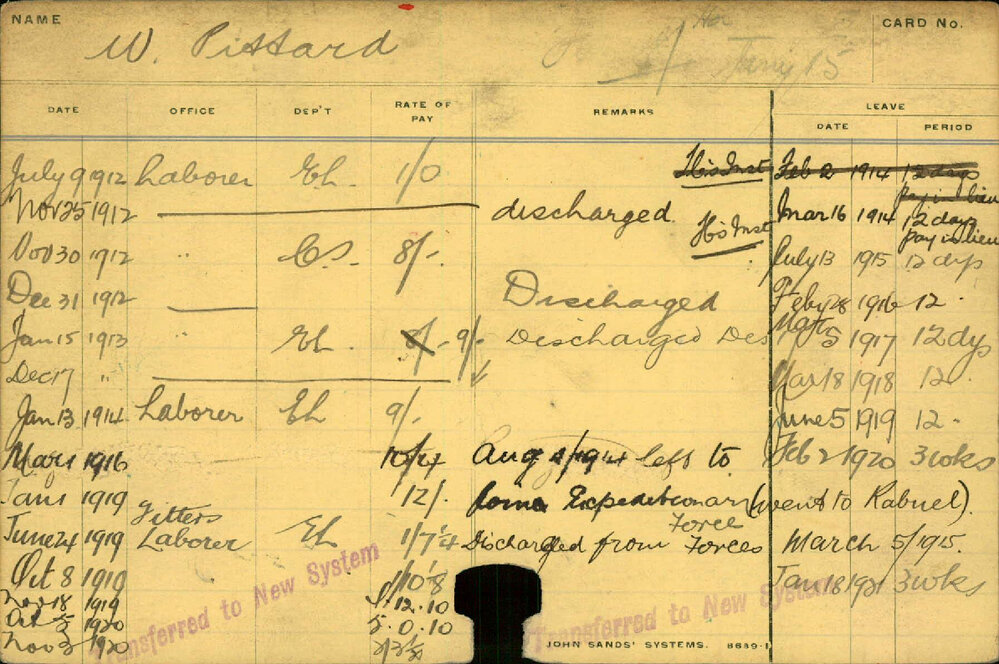 NAME
W. Pittard
Jany 15
CARD NO.
DATE OFFICE DEP'T RATE OF PAY REMARKS LEAVE
DATE PERIOD
July 9 1912 Laborer Eh. 1/0 His Inst Feb 2 1914 12 days
pay in lieu
Nov 25 1912 discharged. Mar 16 1914 12 days
His Inst pay in lieu
Nov 30 1912 " C.S. 8/-. July 13 1915 12 dys
Dec 31 1912 Discharged Feby 28 1916 12.
Jan 15 1913 " Eh. 9/- Discharged Des 5 1917 12 dys
Dec 17 " Mar 18 1918 12.
Jan 13 1914 Laborer Eh 9/- June 5 1919 12.
Mar 1 1916 10/4 Aug left to Feb 2 1920 3 wks
Jan 1 1919 12/- Expeditionary (went to Rabuel).
Force
Fitters
June 24 1919 Laborer Eh Discharged from Forces March 5/1915.
Oct 8 1919 Jan 18 1921 3 wks
Nov 18 1919 12.10
Oct 5 1920 5.0.10
Nov 3 1920
Transferred to New System
Transferred to New System
JOHN SANDS' SYSTEMS. 8639-1